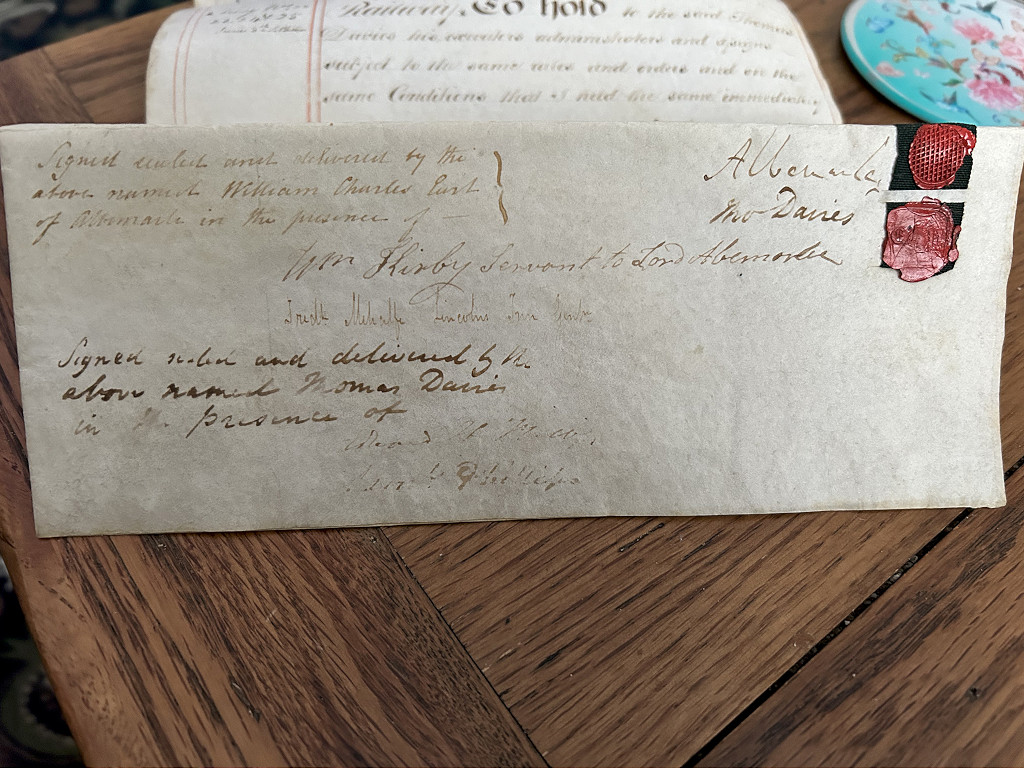 Railway, To hold to the said Thomas
Davies his executors administrators and assigns
subject to the same rules and orders and on the
same Conditions that I held the same immediately
Signed sealed and delivered by the
above named William Charles Earl
of Albemarle in the presence of —
Albemarle
Tho Davies
Wm Kirby Servant to Lord Albemarle
Fredk Metcalfe Lincolns Inn
Signed sealed and delivered by the
above named Thomas Davies
in the presence of
Phillips